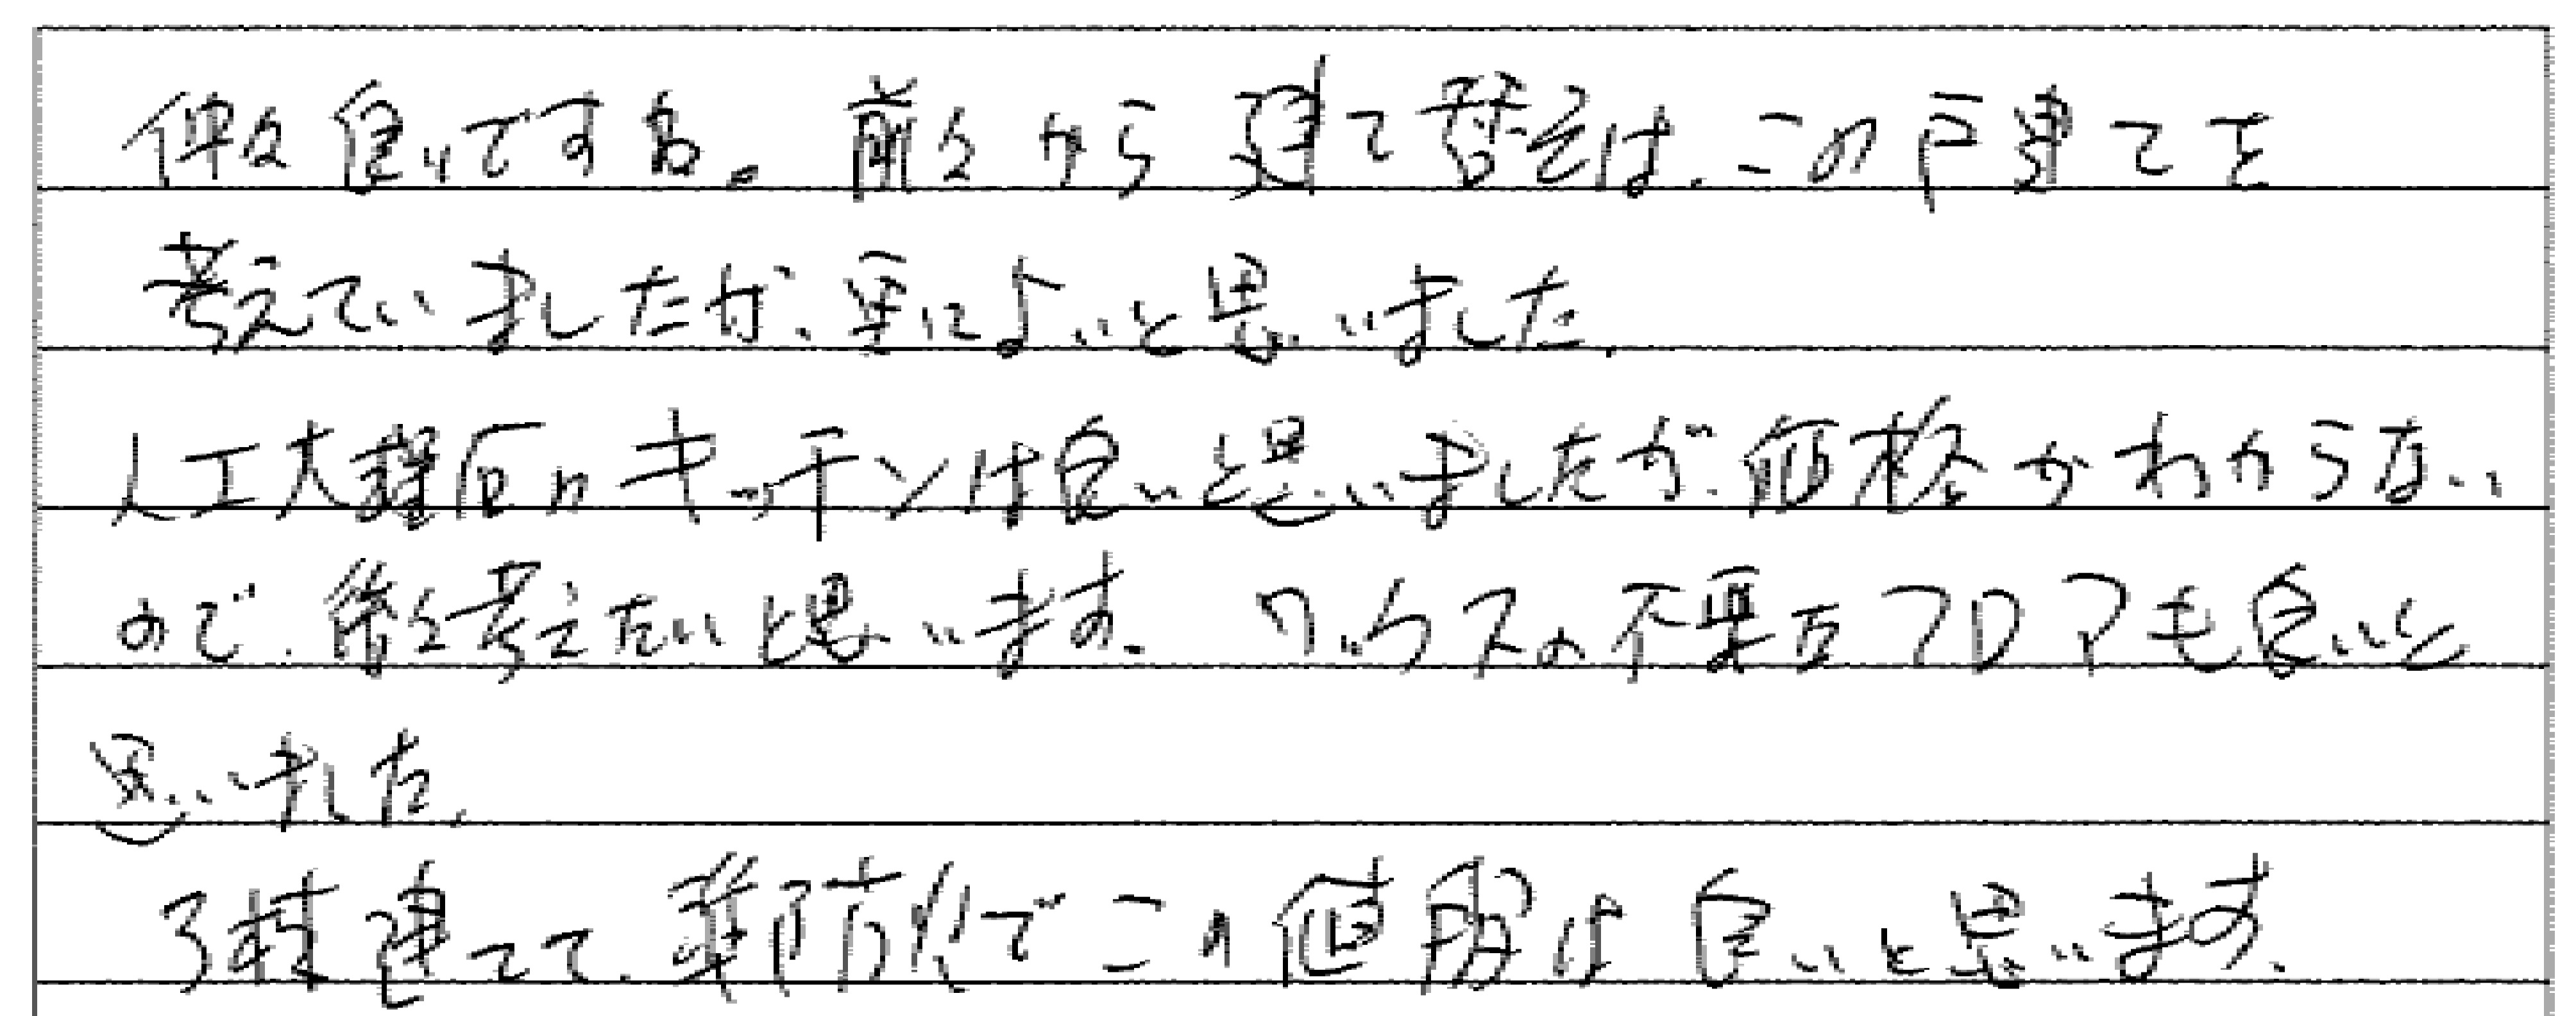 仲々良いですね。前々から建て替えは、この戸建てを
考えていましたが、更によいと思いました。
人工大理石のキッチンは良いと思いましたが、価格がわからない
ので、後々考えたいと思います。ワックスの不要なフロアも良いと
思いました。
3棟建てで、準防火でこの値段は良いと思います。